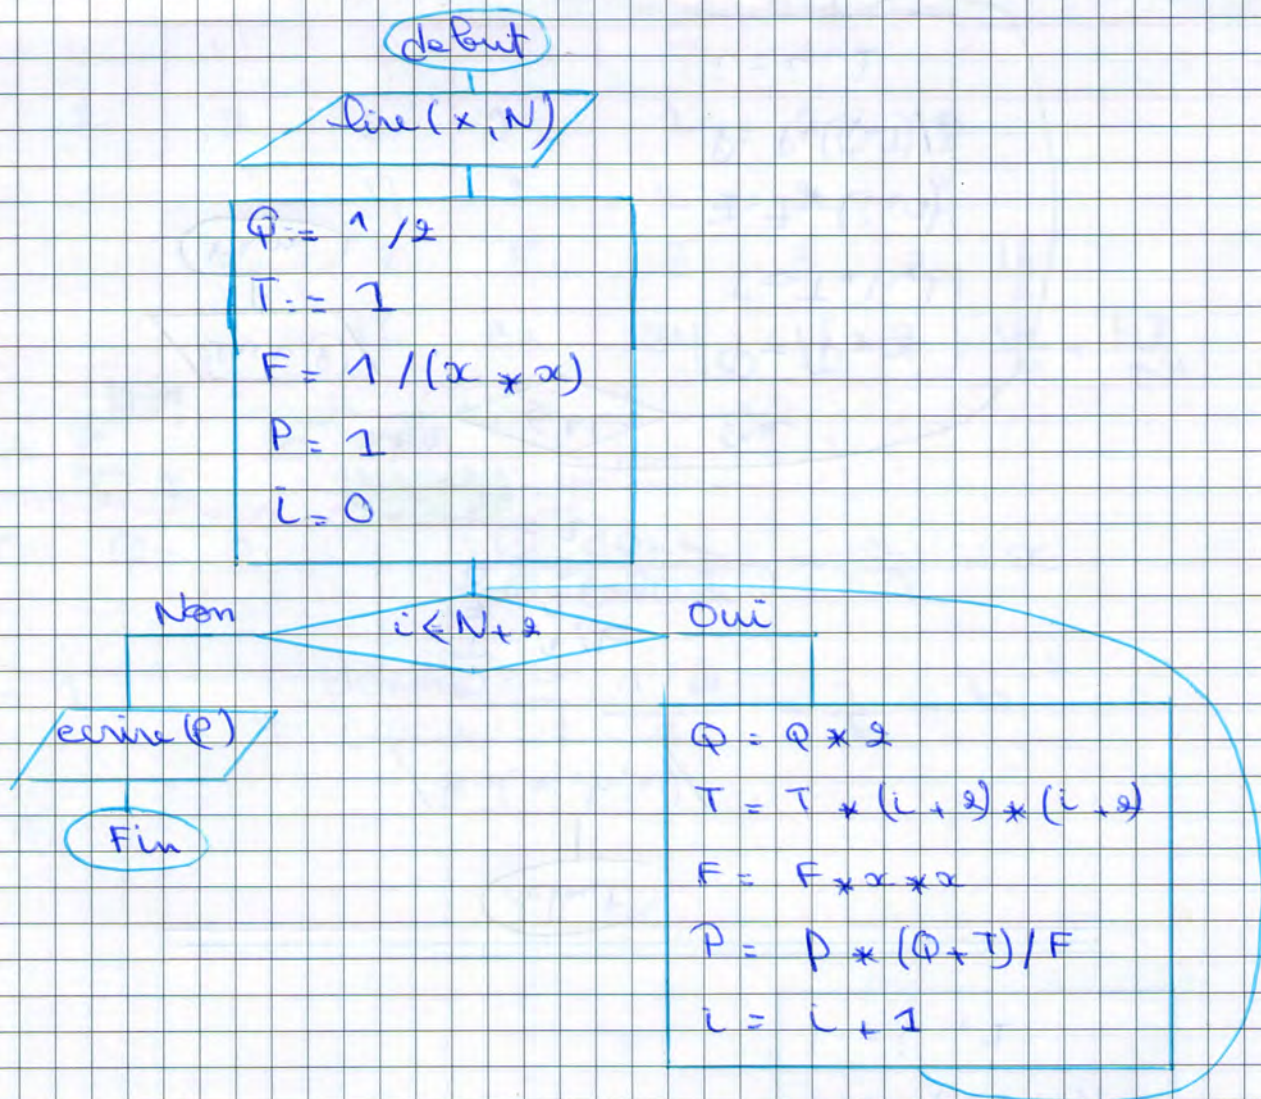 debut
lire(x,N)
Q:= 1/2
T:= 1
F= 1/(x*x)
P= 1
i= 0
Non
i≤N+2
Oui
ecrire(P)
Fin
Q = Q*2
T = T*(i+2)*(i+2)
F = F*x*x
P = P*(Q+T)/F
i = i+1